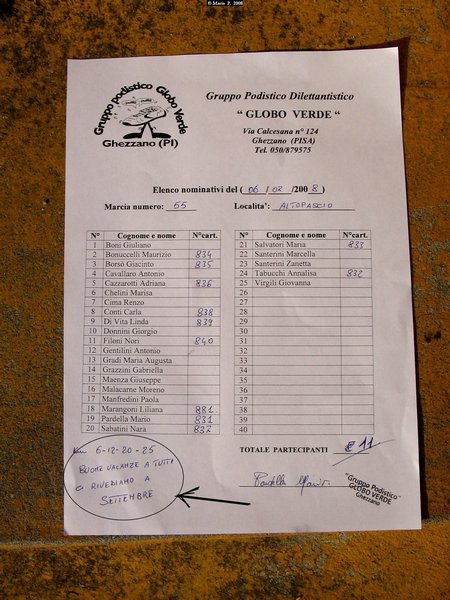 © Mario P. 2008
Gruppo Podistico Globo Verde
Ghezzano (PI)
Gruppo Podistico Dilettantistico
“ GLOBO VERDE “
Via Calcesana n° 124
Ghezzano (PISA)
Tel. 050/879575
Elenco nominativi del ( 06 / 02 /2008 )
Marcia numero: 55 Localita’: ALTOPASCIO
N° Cognome e nome N°cart.
1 Boni Giuliano
2 Bonuccelli Maurizio 834
3 Borsò Giacinto 835
4 Cavallaro Antonio
5 Cazzarotti Adriana 836
6 Chelini Marisa
7 Cima Renzo
8 Conti Carla 838
9 Di Vita Linda 839
10 Donnini Giorgio
11 Filoni Nori 840
12 Gentilini Antonio
13 Gradi Maria Augusta
14 Grazzini Gabriella
15 Maenza Giuseppe
16 Malacarne Moreno
17 Manfredini Paola
18 Marangoni Liliana 881
19 Pardella Mario 831
20 Sabatini Nara 832
N° Cognome e nome N°cart.
21 Salvatori Maria 833
22 Santerini Marcella
23 Santerini Zanetta
24 Tabucchi Annalisa 832
25 Virgili Giovanna
26
27
28
29
30
31
32
33
34
35
36
37
38
39
40
TOTALE PARTECIPANTI 11
6-12-20-25
BUONE VACANZE A TUTTI
CI RIVEDIAMO A
SETTEMBRE
Pardella Mario
"Gruppo Podistico
GLOBO VERDE"
Ghezzano